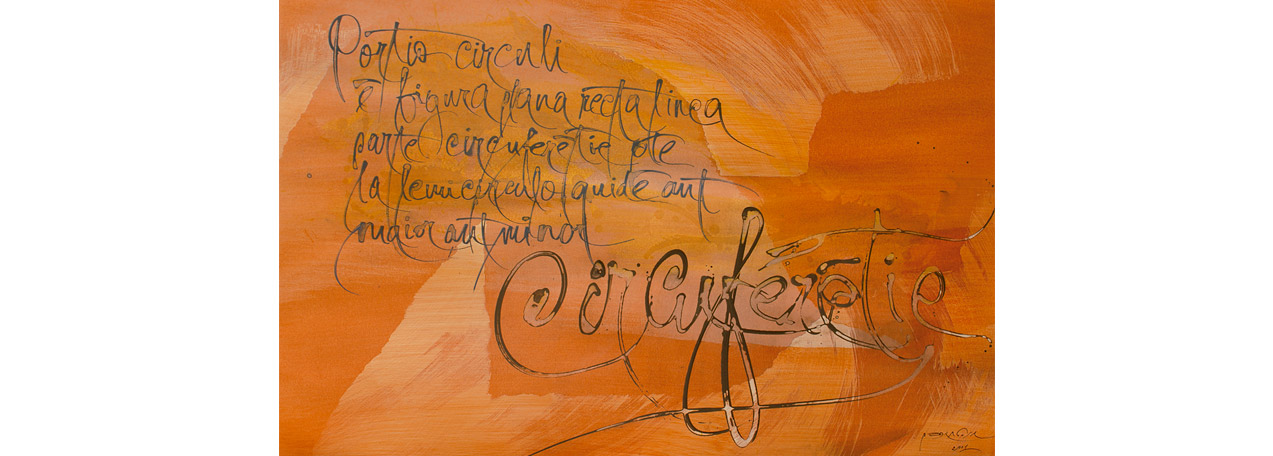 Portio circuli
ē figura plana recta linea
parte circuferētie pte
la semicirculo quidē aut
maior aut minor
Circuferētie